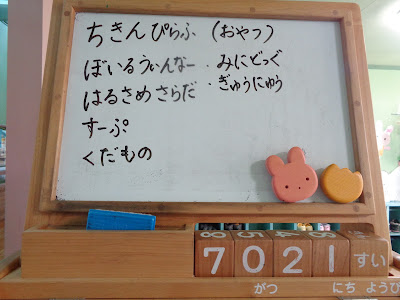 ちきんぴらふ (おやつ)
ぼいるうぃんなー ・みにどっぐ
はるさめさらだ ・ぎゅうにゅう
すーぷ
くだもの
7 0 2 1 すい
がつ にち ようび